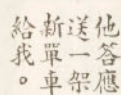 他答應
送一架
新單車
給我。